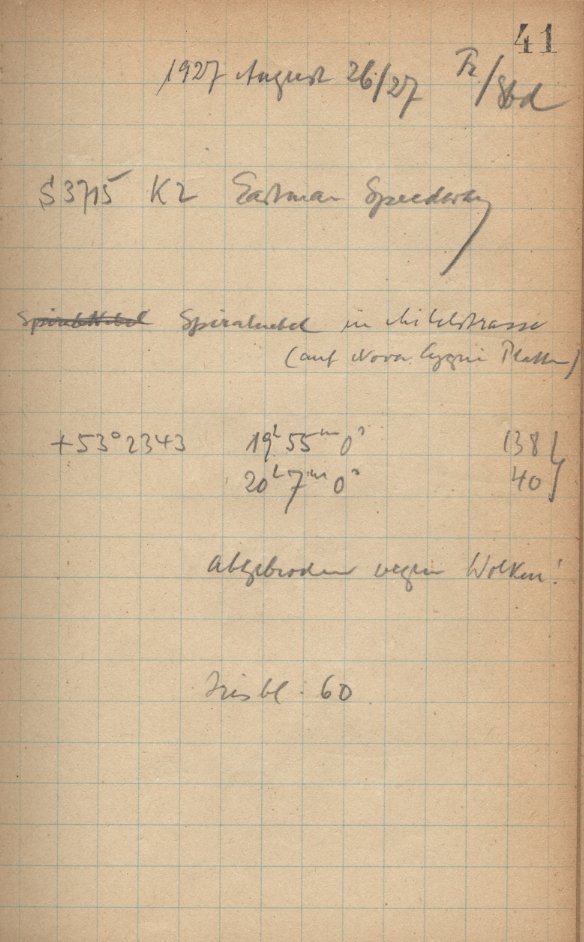 41
1927 August 26/27 Fr/Sbd
S3715 K2 Eastman Speedway
Spiralnebel Spiralnebel in Milchstrasse
(auf Nova Cygni Platten)
+53°2343 19h 55m 0s 138
20h 7m 0s 40
Abgebrochen wegen Wolken!
Irisbl. 60